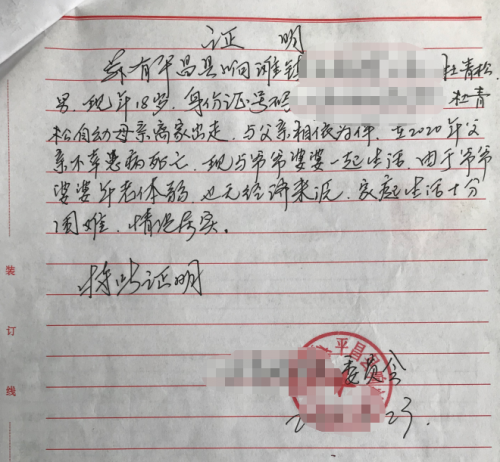 证 明
兹有平昌县 滩镇 杜青松
男，现年18岁，身份证号码 杜青
松自幼母亲离家出走，与父亲相依为伴，在2020年父
亲不幸患病死亡，现与爷爷婆婆一起生活，由于爷爷
婆婆年老体弱，也无经济来源，家庭生活十分
困难，情况属实。
特此证明
平昌县
委员会
2 23.
装
订
线